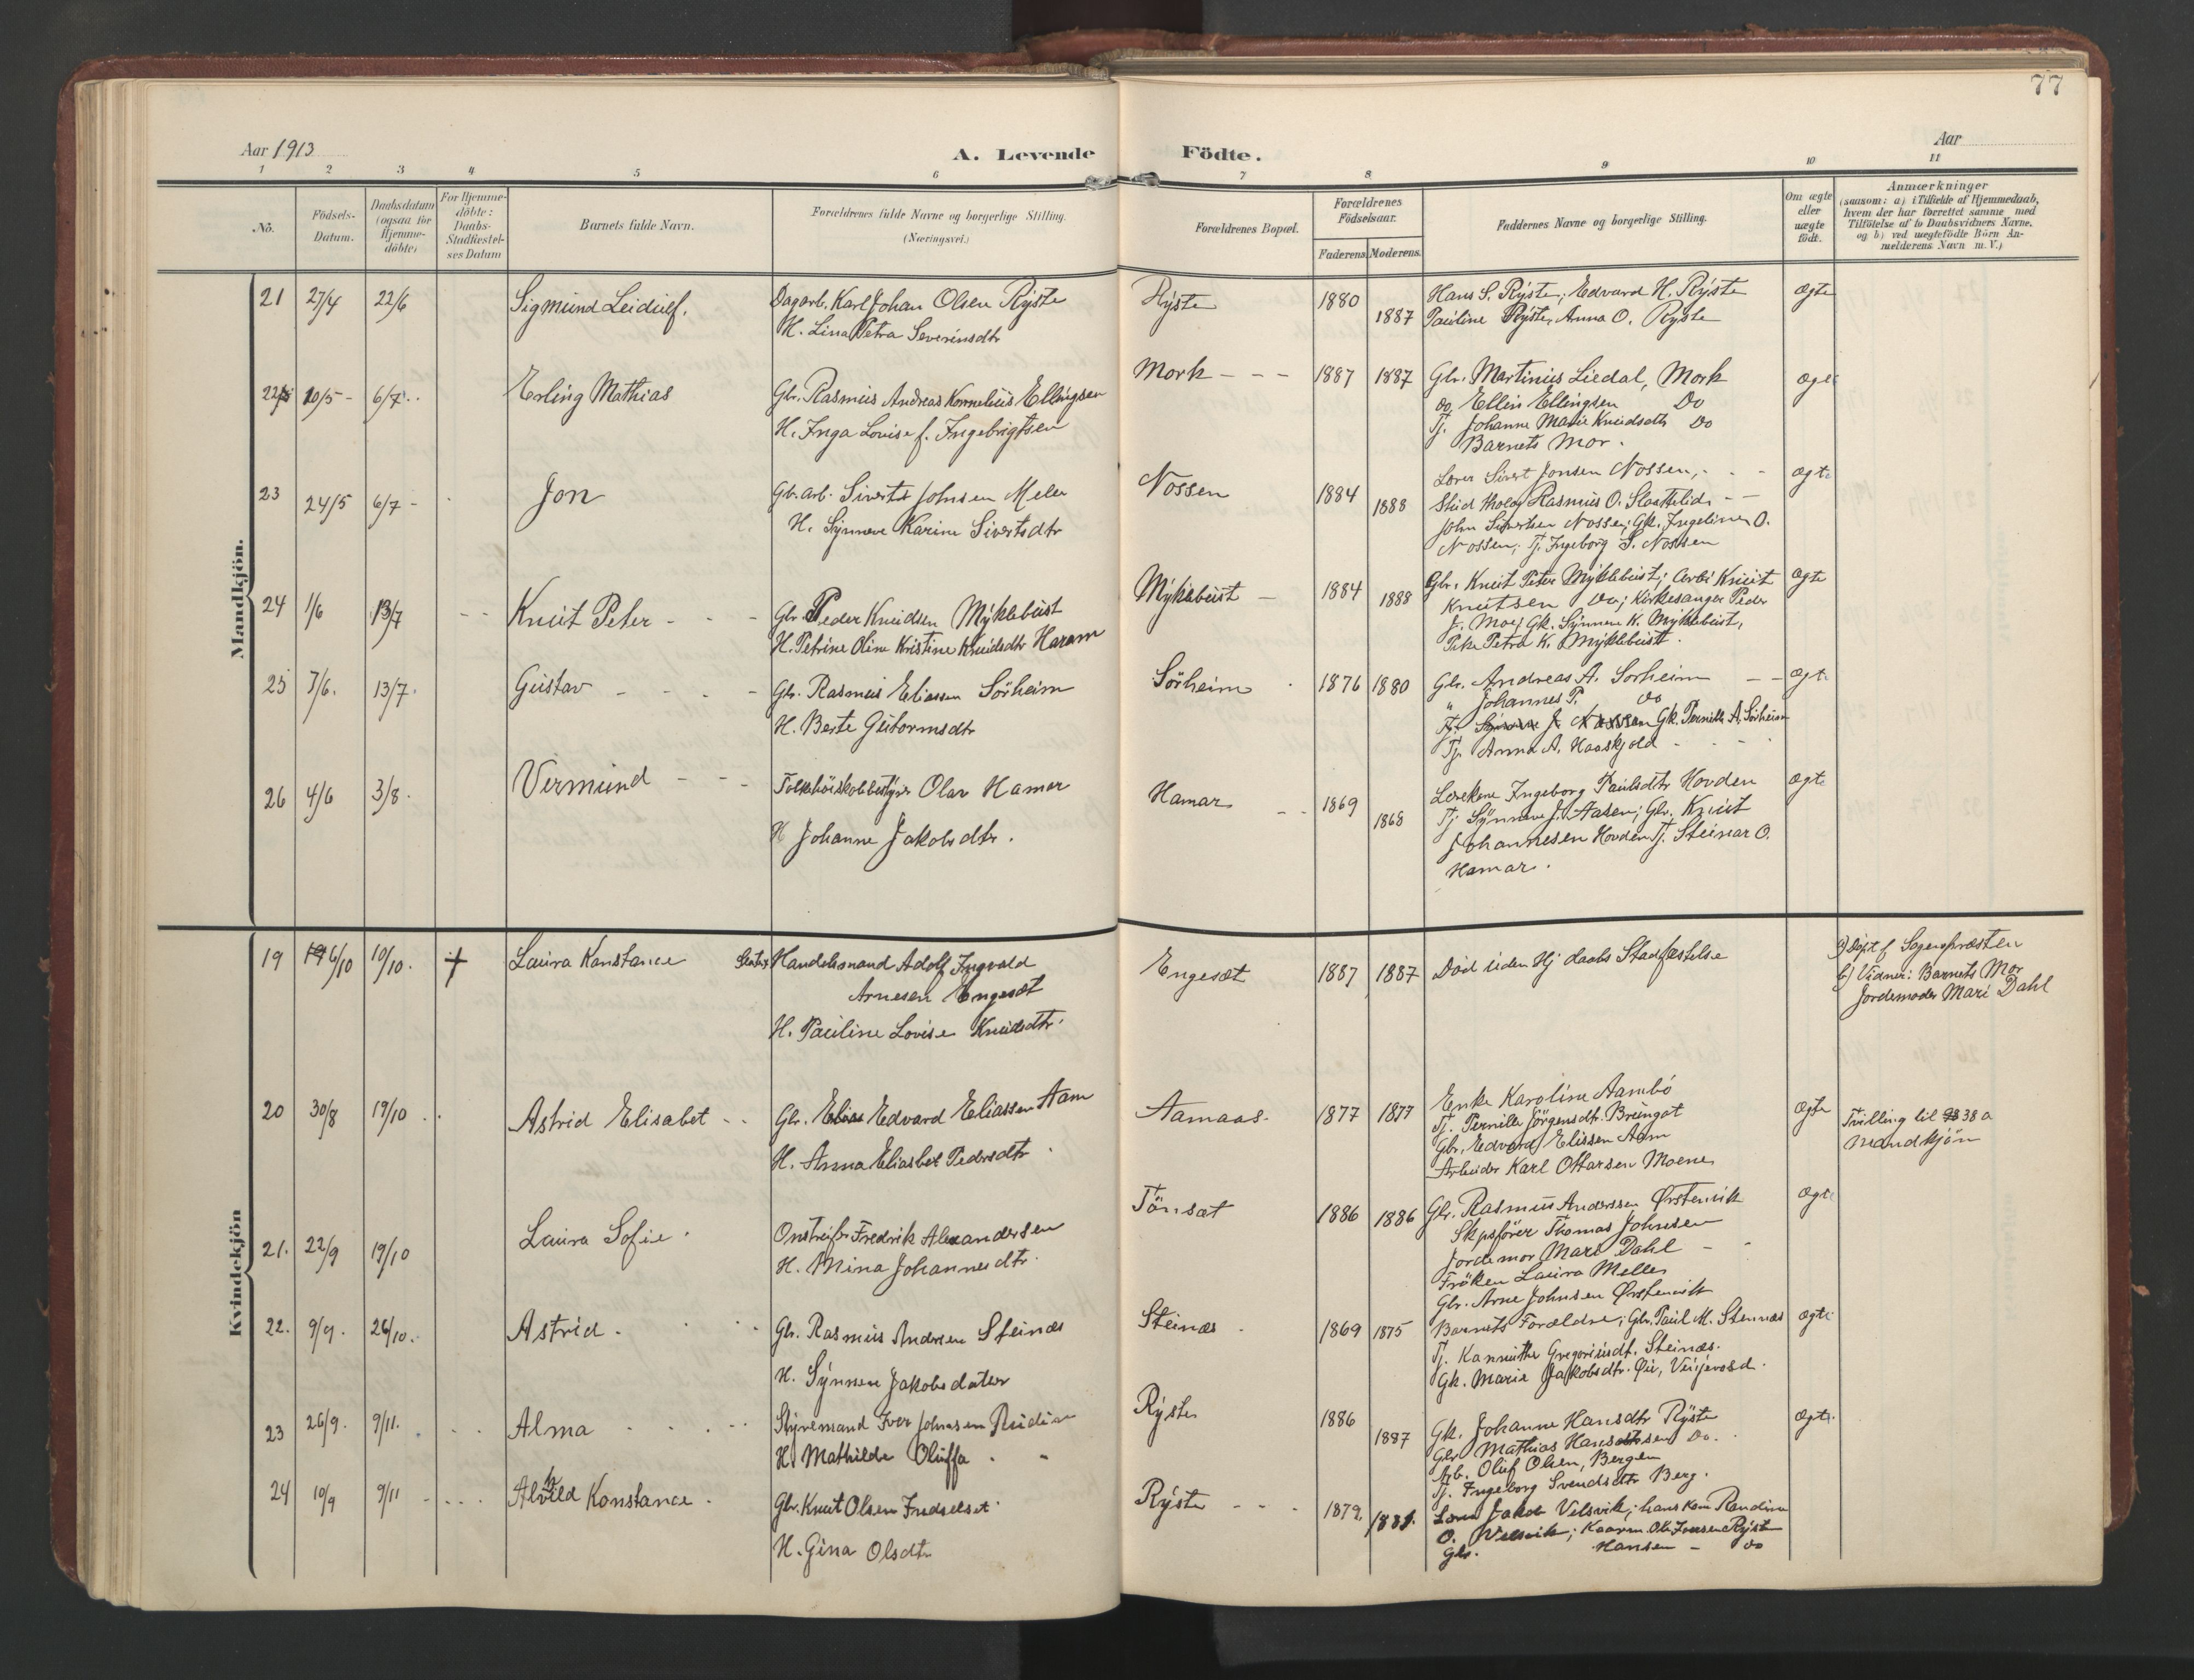 77
Aar 1913
A. Levende Födte.
Aar
1 2 3 4 5 6 7 8 9 10 11
No.
Födsels-Datum.
Daabsdatum (ogsaa for Hjemme-döbte)
For Hjemme-döbte: Daabs-Stadfæstel-ses Datum
Barnets fulde Navn.
Forældrenes fulde Navne og borgerlige Stilling.
(Næringsvei.)
Forældrenes Bopæl.
Forældrenes Födselsaar.
Faderens Moderens.
Faddernes Navne og borgerlige Stilling.
Om ægte eller uægte födt.
Anmærkninger
(saasom: a) i Tilfælde af Hjemmedaab,
hvem der har forrettet samme med
Tilföielse af to Daabsvidners Navne,
og b) ved uægtefödte Börn An-
melderens Navn m. V.)
Mandkjön.
21 27/4 22/6 Sigmund Leidulf. Dagarb. Karl Johan Olsen Ryste Ryste 1880 Hans S. Ryste; Edvard H. Ryste ægte
H. Lina Petra Severinsdtr 1887 Pauline Ryste, Anna O. Ryste
22 10/5 - 6/7 Erling Mathias Gbr. Rasmus Andreas Kornelius Ellingsen Mork - - - 1887 1887 Gbr. Martinius Liedal, Mork ægte
do, Ellin Ellingsen Do
H. Inga Lovise f. Ingebrigtsen Tj. Johanne Marie Knudsdtr Do
Barnets Mor.
23 24/5 6/7 - Jon Gb. arb. Sivert Johnsen Melle Nossen 1884 1888 Lærer Sivert Jonsen Nossen, ægte
Stud theolog Rasmus O. Slaattelid
H. Synneve Karine Sivertsdtr John Sivertsen Nossen; Gk. Ingeline O.
Nossen; Tj. Ingeborg S. Nossen
24 1/6 13/7 Knut Peter Gbr. Peder Knudsen Myklebust Myklebust 1884 1888 Gbr. Knut Peter Myklebust; Arb. Knut ægte
Knutsen Do; Kirkesanger Peder
H. Petrine Oline Kristine Knudsdtr Haram J. Moe; Gk. Synneve K. Myklebust,
Pike Petra K. Myklebust.
25 7/6. 13/7. Gustav Gbr. Rasmus Eliassen Sörheim Sörheim 1876 1880 Gbr. Andreas A. Sorheim ægte
" Johannes P. do
H. Berte Guttormsdtr Gk. Pernille A. Sörheim
Tj. Anna A. Haaskjold
26 4/6 3/8. Vermund Folkehöiskolebestyrer Olav Hamar Hamar 1869 1868 Lærerinne Ingeborg Paulsdtr Hovden ægte
Tj. Synneve J. Aasen; Gbr. Knut
H Johanne Jakobsdtr. Johannesen Hovden Tj. Steinar O.
Hamar.
Kvindekjön
19 6/10 10/10. + Laura Konstance Handelsmand Adolf Ingvald Engesæt 1887 1887 Död uden Hj daabs Stadfæstelse a) Döpt f Sogenpræsten
Arnesen Engesæt b) Vidner: Barnets Mor
H. Pauline Lovise Knudsdtr. Jordemoder Mari Dahl
20 30/8 19/10 Astrid Elisabet Gbr. Edvard Eliassen Aam Aamaas. 1877 1877 Enke Karoline Aambö ægte Tvilling til 38 a
Tj. Pernille Jörgensdtr. Brungot Mandkjön
H. Anna Eliasbet Pedersdtr Gbr. Edvard Elissen Aam
Arbeider Karl Ottarsen Moene
21. 22/9 19/10 Laura Sofie. Fredrik Alexandersen Tönsæt 1886 1886 Gbr. Rasmus Anderssen Ørstenvik ægte
Skpsförer Thomas Johnsen
H. Mina Johannesdtr. Jordemor Mari Dahl
Fröken Laura Melle
Gbr. Arne Johnsen Ørstenvik
22. 9/9. 26/10. Astrid. Gbr. Rasmus Andersen Steinæs Steinæs 1869 1875 Barnets Forældre; Gbr. Paul M. Steinnæs ægte
Tj. Gregoriusdt. Steinæs.
H. Synneve Jakobsdatter Gk. Marie Jakobsdtr.
23 26/9. 9/11. Alma Styremand Iver Johnsen Ryste 1886 1887 Gk. Johanne Hansdtr Ryste ægte
H. Mathilde Oluffa Gbr Mathias Hansen Do.
Arb. Oluf Olsen, Bergen
Tj. Ingeborg Svendsdtr Berg.
24 10/9 9/11 Alvhild Konstance. Gbr. Knut Olsen Ryste 1879 1881. Lærer Jakob Velsvik; hans Kone Randine
O. Velsvik; Ryste
H. Gina Olsdtr Gbr. Hansen - do